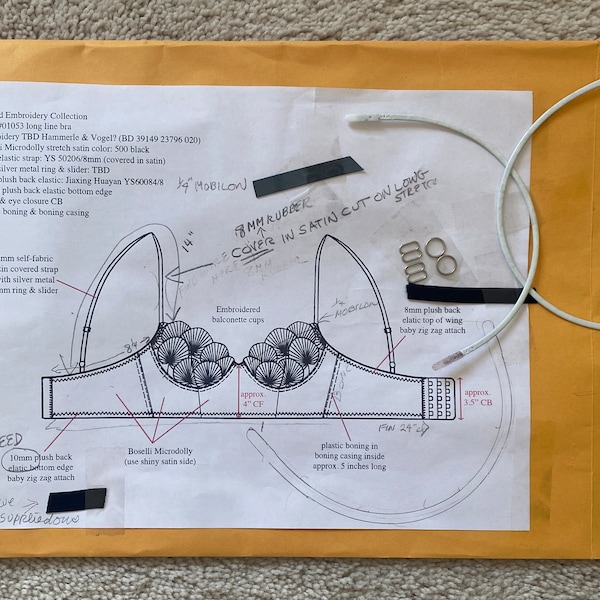 d Embroidery Collection
#01053 long line bra
oidery TBD Hammerle & Vogel? (BD 39149 23796 020)
i Microdolly stretch satin color: 500 black
elastic strap: YS 50206/8mm (covered in satin)
silver metal ring & slider: TBD
plush back elastic: Jiaxing Huayan YS60084/8
plush back elastic bottom edge
& eye closure CB
boning & boning casing
1/4" MOBILON
8MM RUBBER
COVER IN SATIN CUT ON LONG
STRETCH
14"
mm self-fabric
tin covered strap
with silver metal
mm ring & slider
Embroidered
balconette cups
1/4 MOBILON
8mm plush back
elatic top of wing
baby zig zag attach
8 1/4
approx.
4" CF
approx.
3.5" CB
FIN 24"
EED
10mm plush back
elatic bottom edge
baby zig zag attach
Boselli Microdolly
(use shiny satin side)
plastic boning in
boning casing inside
approx. 5 inches long
SUPPLIED